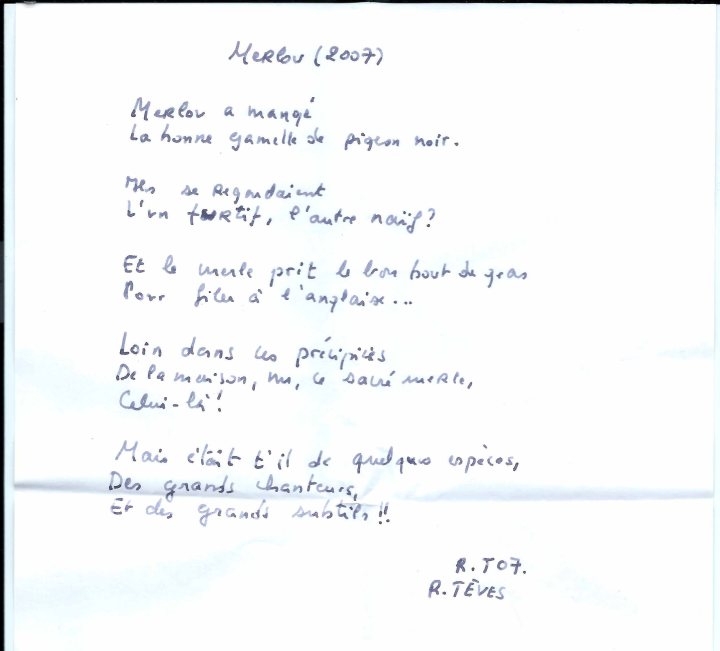 Merlou (2007)
Merlou a mangé
La bonne gamelle de pigeon noir.
Ils se regardaient
L'un furtif, l'autre naïf?
Et le merle prit le bon bout de gras
Pour filer à l'anglaise...
Loin dans les précipices
De la maison, nu, ce sacré merle,
Celui-là!
Mais était t'il de quelques espèces,
Des grands chanteurs,
Et des grands subtils!!
R.T07.
R.TÈVES